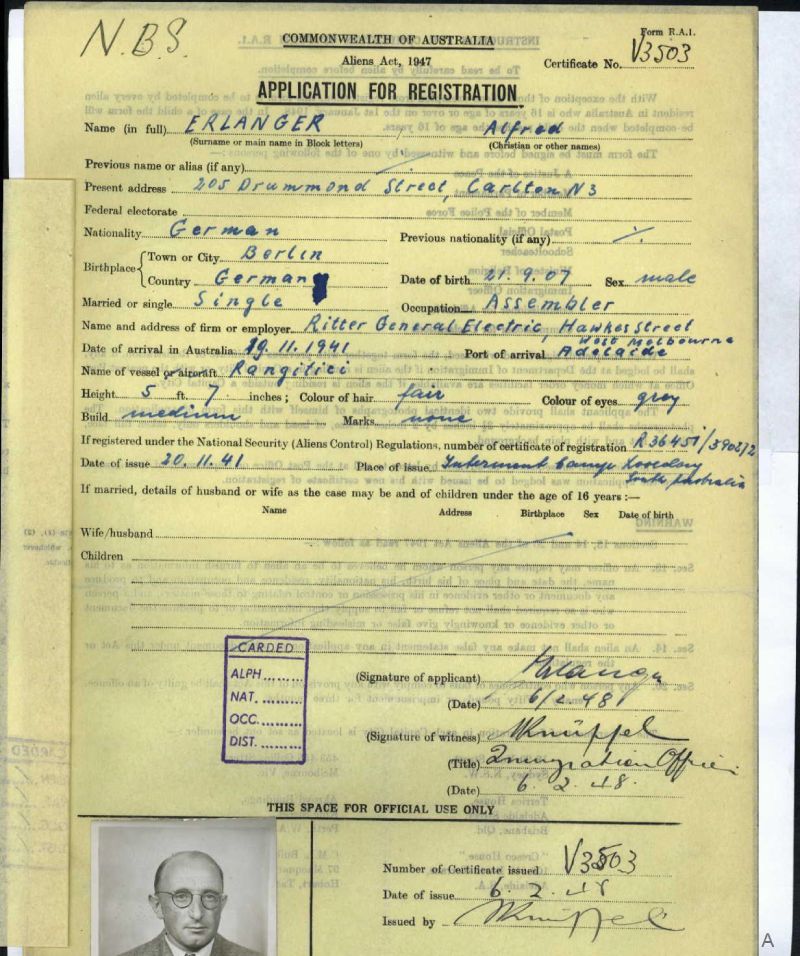 N.B.S.
Form R.A.1.
COMMONWEALTH OF AUSTRALIA
Aliens Act, 1947
Certificate No. V3503
APPLICATION FOR REGISTRATION
Name (in full) ERLANGER Alfred
(Surname or main name in Block letters) (Christian or other names)
Previous name or alias (if any)
Present address 205 Drummond Street, Carlton N3
Federal electorate
Nationality German Previous nationality (if any) %
Birthplace { Town or City Berlin
Country Germany Date of birth 21.9.07 Sex male
Married or single Single Occupation Assembler
Name and address of firm or employer Ritter General Electric, Hawkes Street
West Melbourne
Date of arrival in Australia 19.11.1941 Port of arrival Adelaide
Name of vessel or aircraft Rangitiei
Height 5 ft. 7 inches; Colour of hair fair Colour of eyes grey
Build medium Marks none
If registered under the National Security (Aliens Control) Regulations, number of certificate of registration R36451/
Date of issue 20.11.41 Place of issue Internment Camp
South Australia
If married, details of husband or wife as the case may be and of children under the age of 16 years :—
Name Address Birthplace Sex Date of birth
Wife/husband
Children
CARDED
ALPH.
NAT.
OCC.
DIST.
(Signature of applicant) Erlanger
(Date) 6/2.48
(Signature of witness) Knüppel
(Title) Immigration Officer
(Date) 6.2.48.
THIS SPACE FOR OFFICIAL USE ONLY
Number of Certificate issued V3503
Date of issue 6.2.48
Issued by Knüppel
A